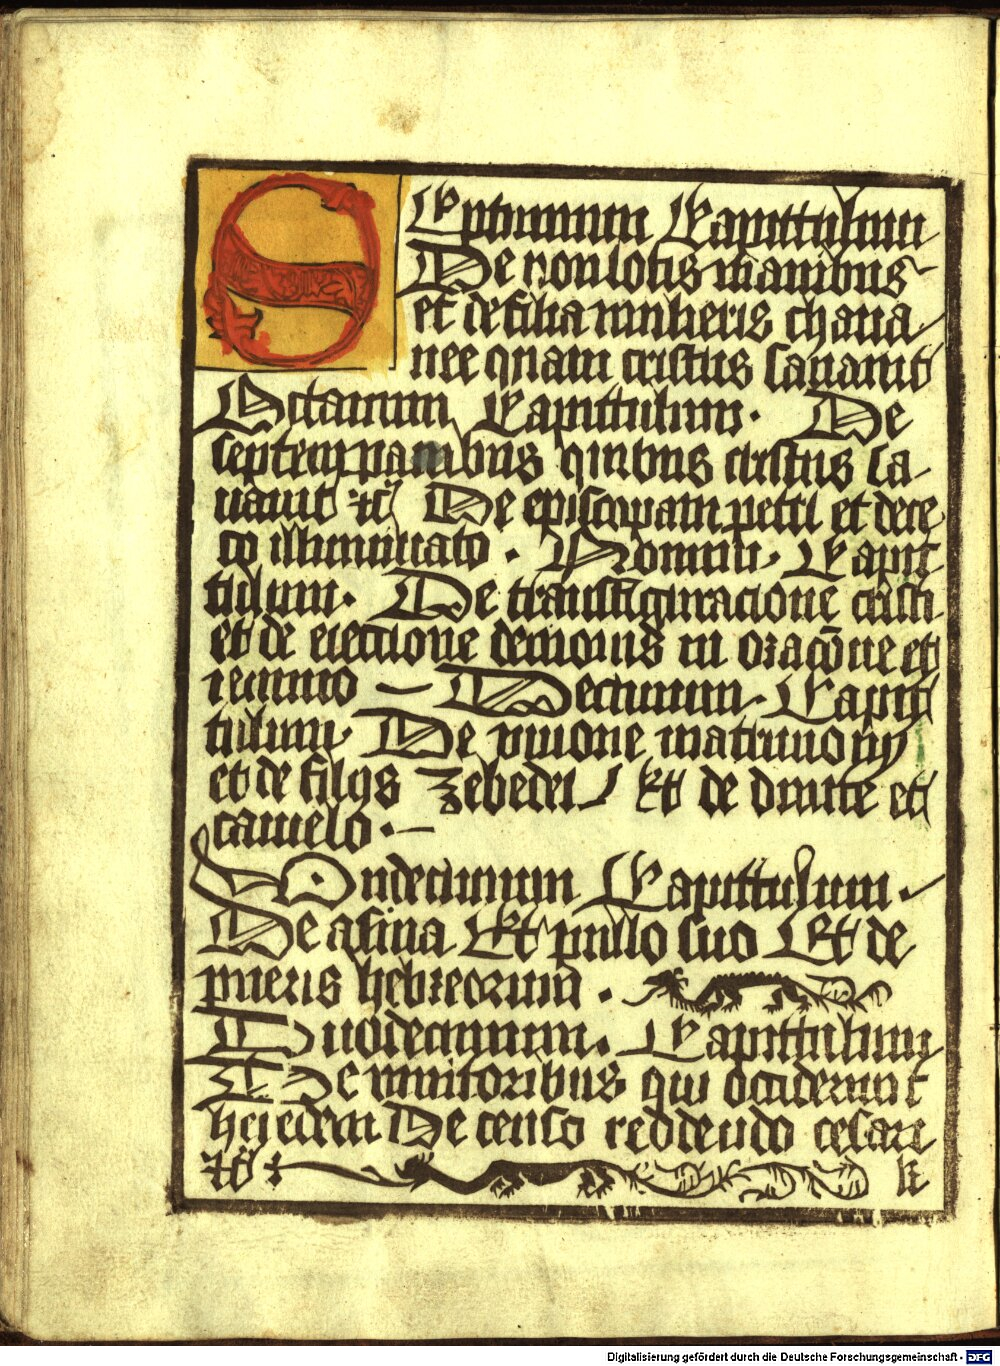 SEptimum Capittulum
De non lotis manibus
et de filia mulieris chana
nee quam cristus sanauit
Octauum Capittulum. De
septem panibus quibus cristus sa
uauit etc̄ De episcopatu petri et dece
co illuminato. Nonum Capit
tulum. De transfiguracione cristi
et de eiectione demonis in oracōne et
ieiunio Decimum. Capit
tulum De vnione matrimonij
et de filijs Zebedei Et de diuite et
camelo.
Vndecimum Capittulum.
De asina Et pullo suo Et de
pueris hebreorum.
Duodecimum. Capittulum
De vinitoribus qui occiderunt
heredem De censo reddendo cesare
etc̄ k
Digitalisierung gefördert durch die Deutsche Forschungsgemeinschaft - DFG